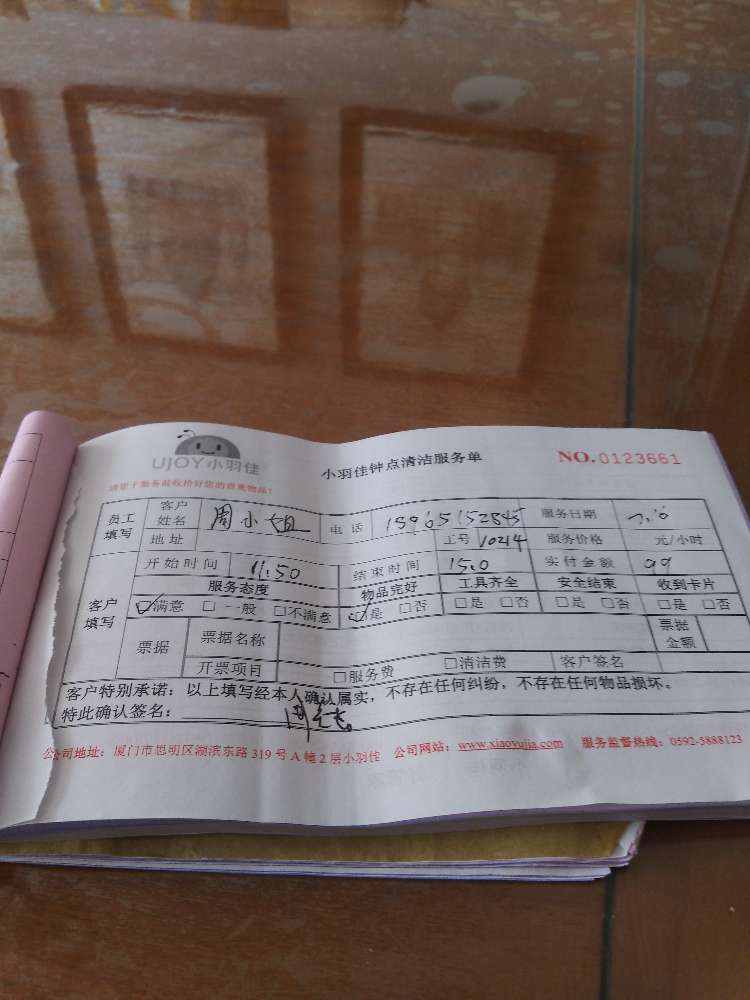 UJOY小羽佳
小羽佳钟点清洁服务单
NO.0123661
请您于服务前收拾好您的贵重物品!
员工填写 客户姓名 周小姐 电话 18965152845 服务日期
地址 工号 1044 服务价格 元/小时
客户填写 开始时间 11.50 结束时间 15.0 实付金额 99
服务态度 物品完好 工具齐全 安全结束 收到卡片
☑满意 □一般 □不满意 ☑是 □否 □是 □否 □是 □否 □是 □否
票据 票据名称 票据金额
开票项目 □服务费 □清洁费 客户签名
客户特别承诺：以上填写经本人确认属实，不存在任何纠纷，不存在任何物品损坏。
特此确认签名：
公司地址：厦门市思明区湖滨东路319号A幢2层小羽佳 公司网站：www.xiaoyujia.com 服务监督热线：0592-5888123